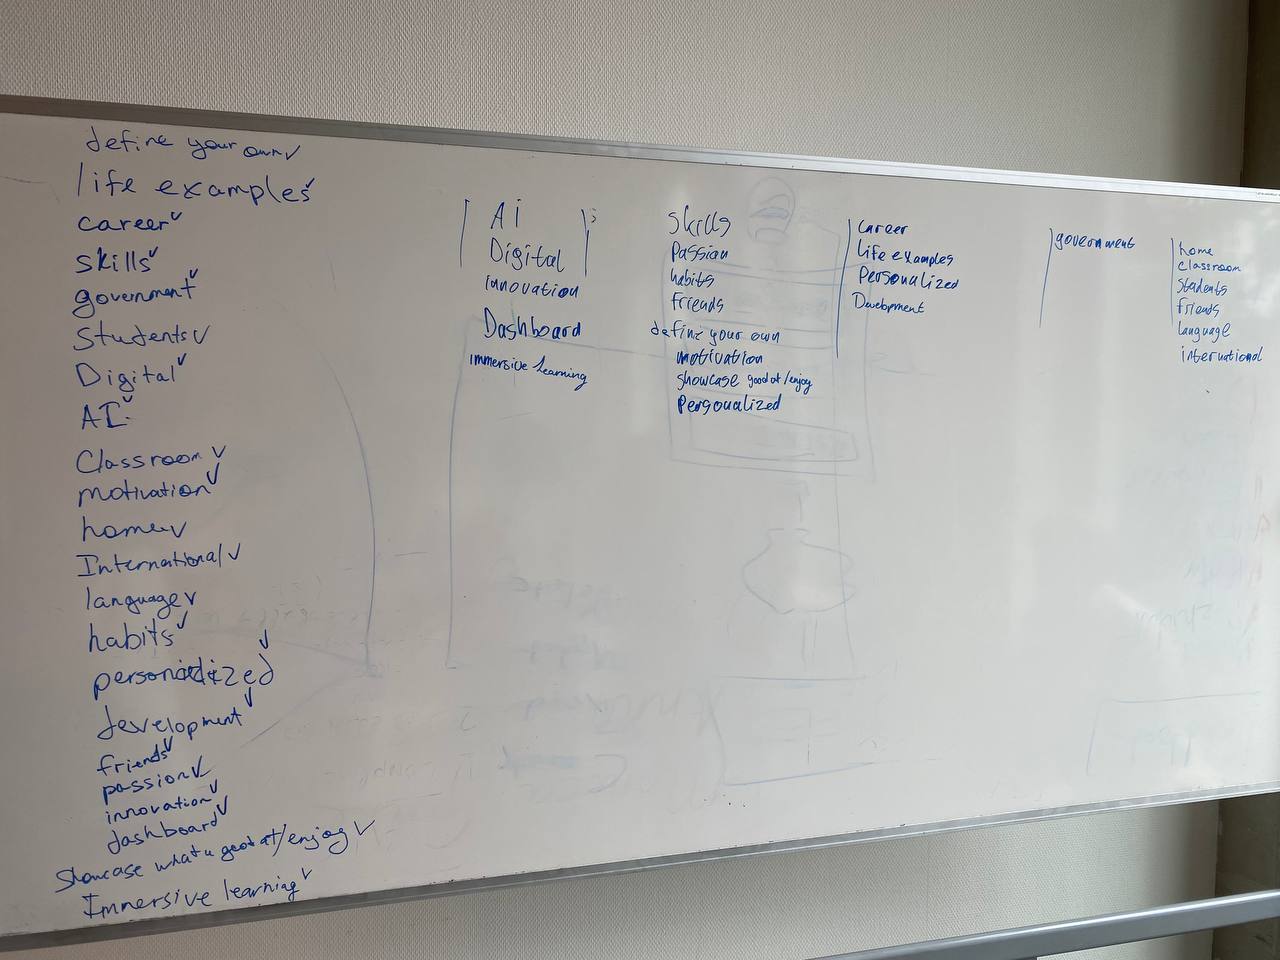 define your own ✓
life examples ✓
career ✓
skills ✓
government ✓
Students ✓
Digital ✓
AI ✓
Classroom ✓
motivation ✓
home ✓
International ✓
language ✓
habits ✓
personalized ✓
development ✓
friends ✓
passion ✓
innovation ✓
dashboard ✓
Showcase what u good at/enjoy ✓
Immersive learning ✓
Ai
Digital
innovation
Dashboard
immersive Learning
Skills
Passion
habits
Friends
define your own
motivation
showcase good at/enjoy
Personalized
Career
Life examples
Personalized
Development
government
home
Classroom
Students
friends
Language
international